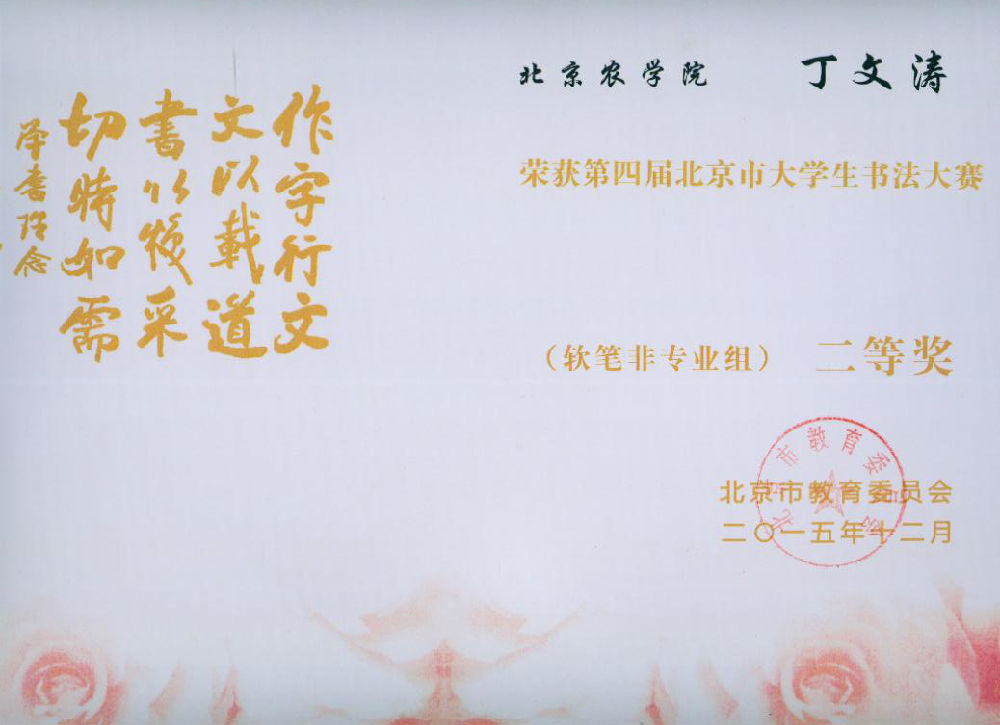 北京农学院 丁文涛
荣获第四届北京市大学生书法大赛
（软笔非专业组） 二等奖
北京市教育委员会
二〇一五年十二月
北京市教育委员会
作字行文
文以載道
書以煥采
切時如需